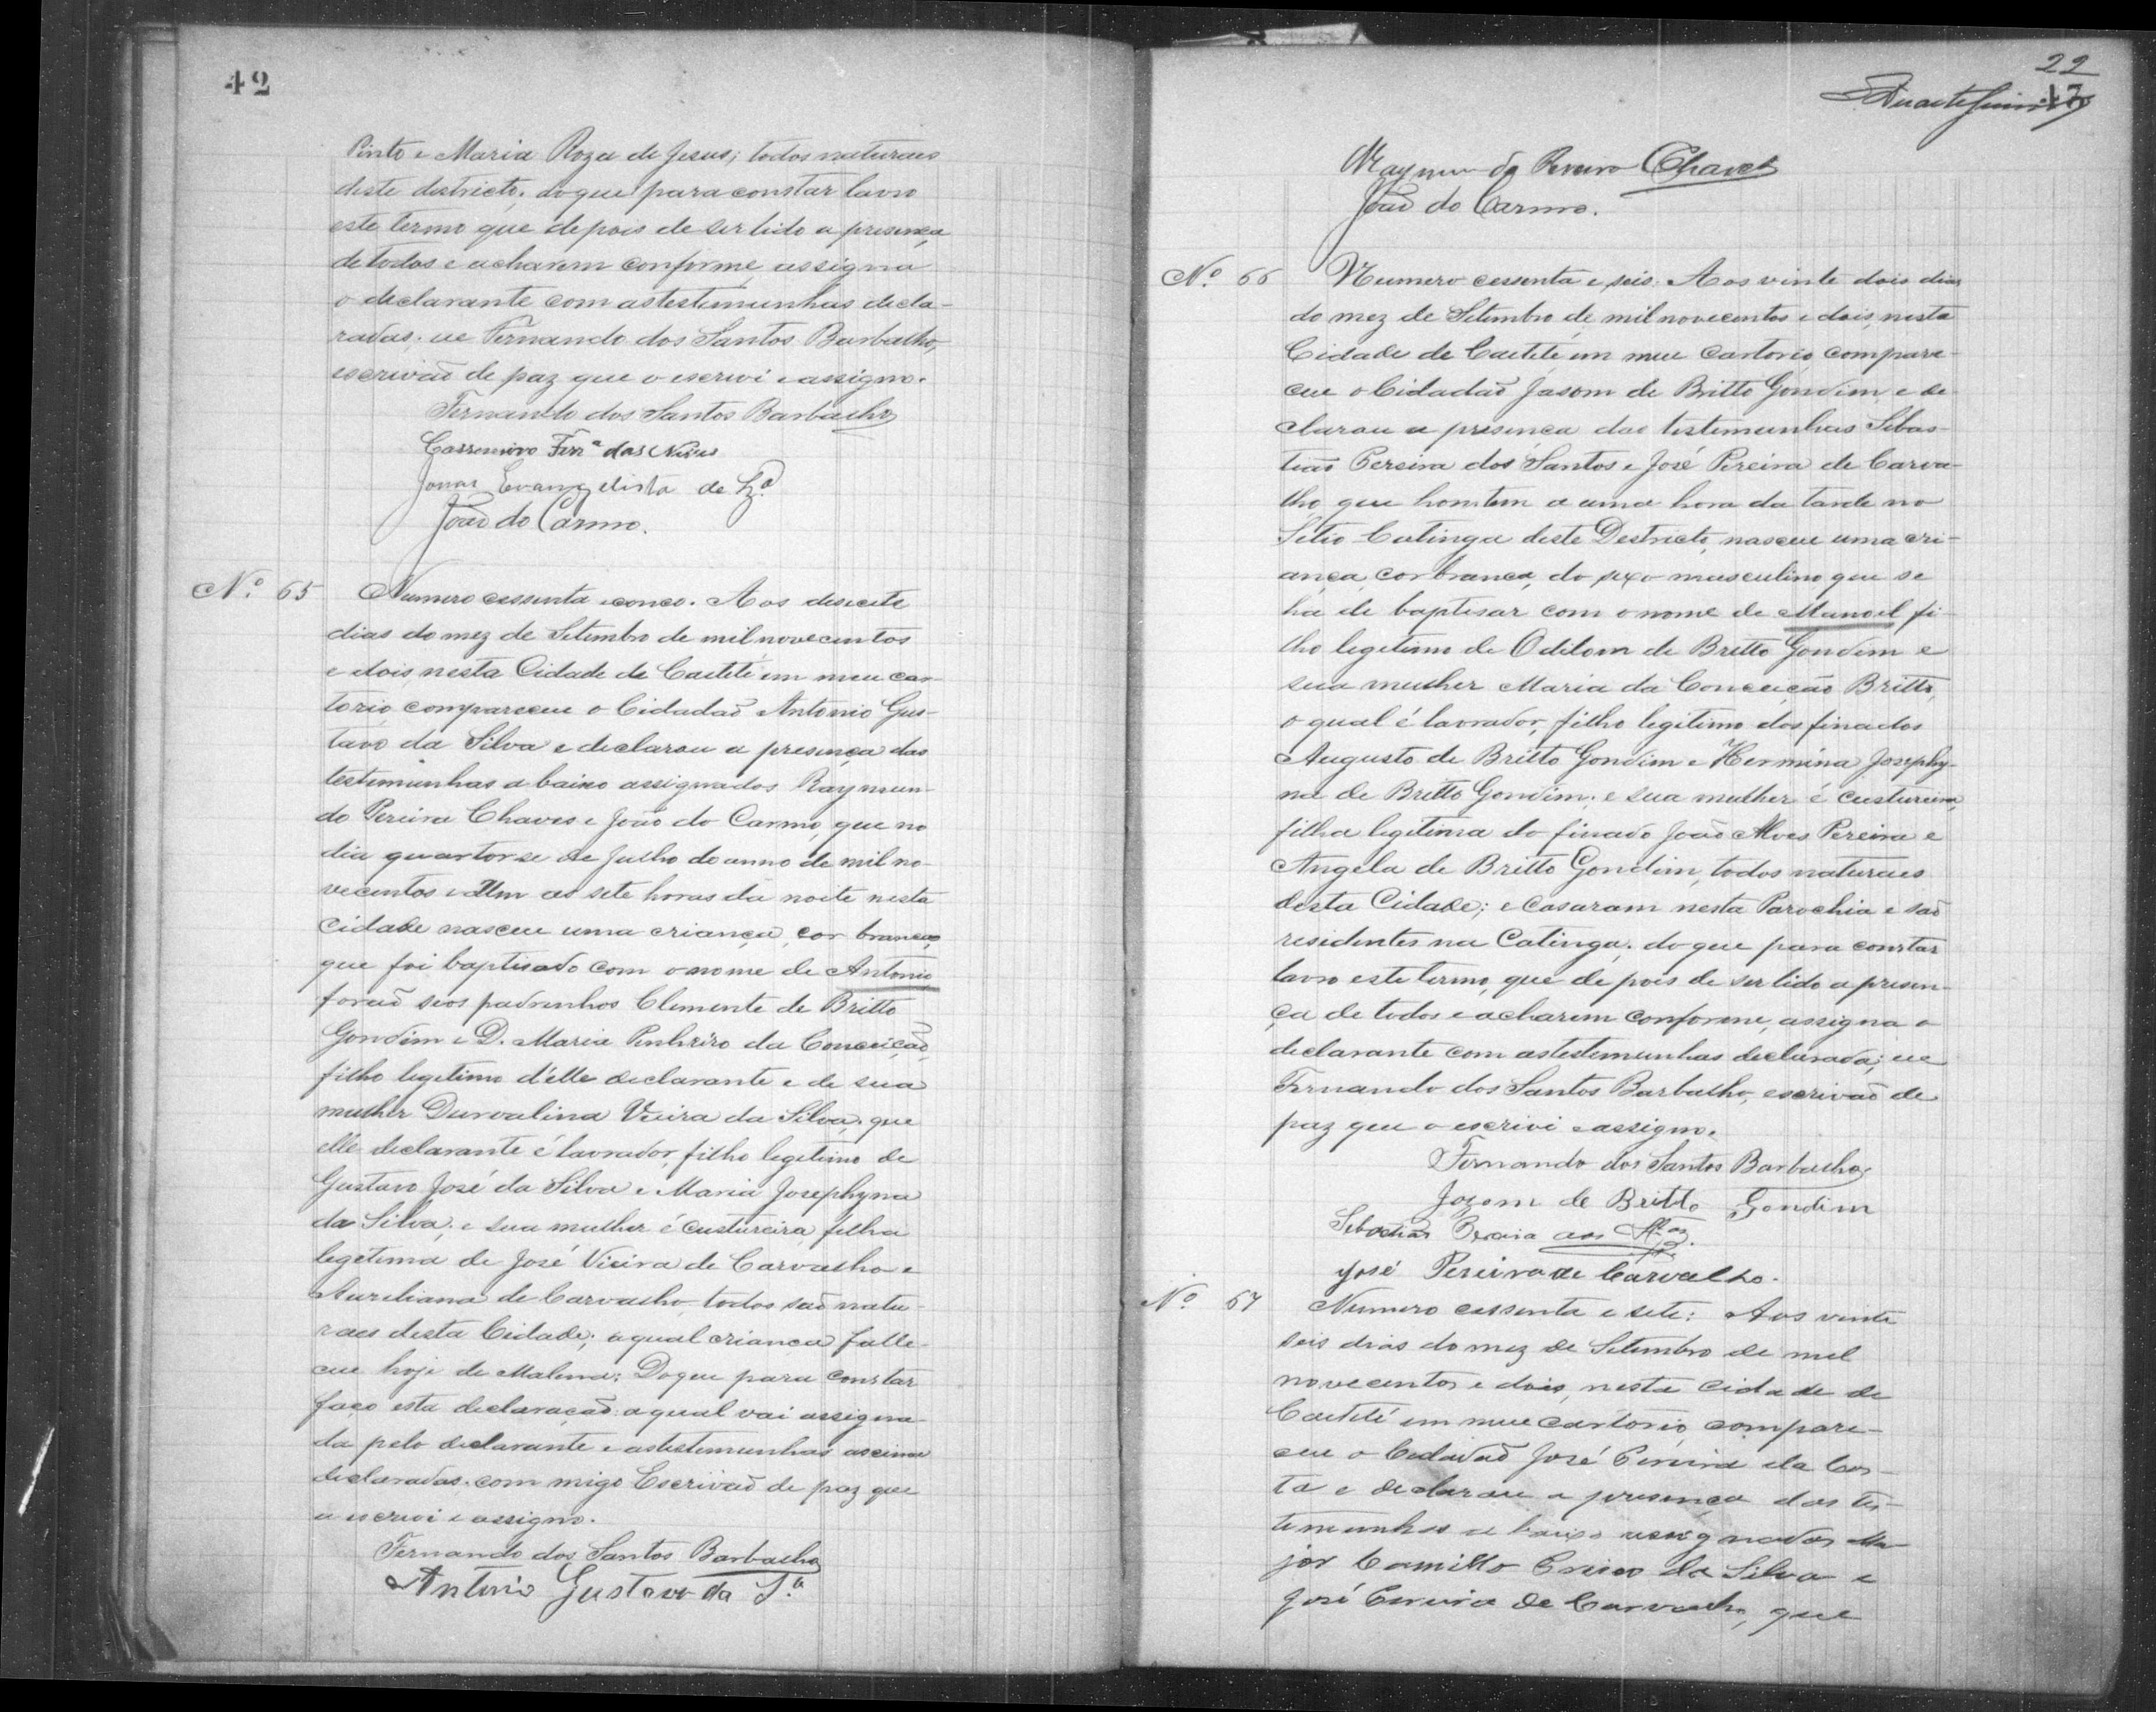 42
Pinto e Maria Roza de Jesus; todos naturaes
deste districto, do que para constar lavro
este termo que depois de ser lido a presença
de todos e acharem conforme assigna
o declarante com as testimunhas decla-
radas. eu Fernando dos Santos Barbalho,
escrivão de paz que o escrivi e assigno.
Fernando dos Santos Barbalho
Cassemiro Ferrª das Neves
Jonas Evangelista de
João do Carmo.
Nº 65 Numero cessenta e conco. Aos desecete
dias do mez de Setembro de mil novecentos
e dois, nesta Cidade de Caetité em meu car-
torio compareceu o Cidadão Antonio Gus-
tavo da Silva e declarou a presença das
testimunhas a baixo assignados Raymun-
do Pereira Chaves e João do Carmo, que no
dia quartorse de Julho do anno de mil no-
vecentos e Um as sete horas da noite nesta
Cidade nasceu uma criança, cor branca,
que foi baptisado com o nome de Antonio
forão seos padrinhos Clemente de Britto
Gondim e D. Maria Pinheiro da Conceição,
filho legitimo d'elle declarante e de sua
mulher Durvalina Vieira da Silva, que
elle declarante é lavrador, filho legitimo de
Gustavo José da Silva e Maria Josephyna
da Silva; e sua mulher é custureira filha
legetima de José Vieira de Carvalho e
Aureliana de Carvalho, todos são natu-
raes desta Cidade; a qual criança falle-
ceu hoje de Malina; Do que para constar
faço esta declaração a qual vai assigna-
da pelo declarante e as testemunhas ascima
declaradas. com migo Escrivão de paz que
a escrivi e assigno.
Fernando dos Santos Barbalho
Antonio Gustavo da Sª
22
Raymundo Pereira Chaves
João do Carmo.
Nº 66 Numero cessenta e seis. Aos vinte dois dias
do mez de Setembro de mil novecentos e dois, nesta
Cidade de Caetité em meu Cartorio, compare-
ceu o Cidadão Jasom de Britto Gondim e de-
clarou a presença das testimunhas Sebas-
tião Pereira dos Santos e José Pereira de Carva-
lho, que homtem a uma hora da tarde no
Sitio Catinga deste Destricto, nasceu uma cri-
ança, cor branca, do sexo masculino que se
ha de baptisar com o nome de Manoel fi-
lho legetimo de Odilom de Britto Gondim e
sua mulher Maria da Conceição Britto,
o qual é lavrador, filho legitimo dos finados
Augusto de Britto Gondim e Hermina Josephy-
na de Britto Gondim; e sua mulher é custureira,
filha legetima do finado João Alves Pereira e
Angela de Britto Gondim, todos naturaes
desta Cidade; e Casaram nesta Parochia e são
residentes na Catinga. do que para constar
lavro este termo, que de pois de ser lido a presen-
ça de todos e acharem conforme, assigna o
declarante com as testemunhas declarada; eu
Fernando dos Santos Barbalho, escrivão de
paz que o escrivi e assigno.
Fernando dos Santos Barbalho
Jozom de Britto Gondim
Sebastião Pereira dos Stos.
José Pereira de Carvalho.
Nº 67 Numero cessenta e sete: Aos vinte
seis dias do mez de Setembro de mil
novecentos e dois, nesta Cidade de
Caetité em meu cartorio, compare-
ceu o Cidadão José Pereira da Cos-
ta e declarou a presença das tes-
timunhas a baixo assignados Ma-
jor Camillo da Silva e
José Pereira de Carvalho, que